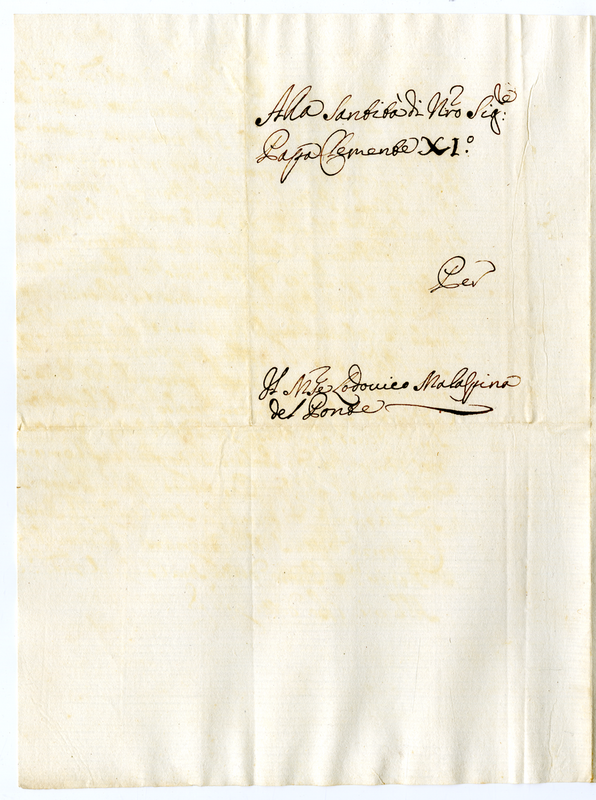 Alla Santità di Nro Sig:re
Papa Clemente XI.º
Per
Il M:se Lodovico Malaspina
del Ponte